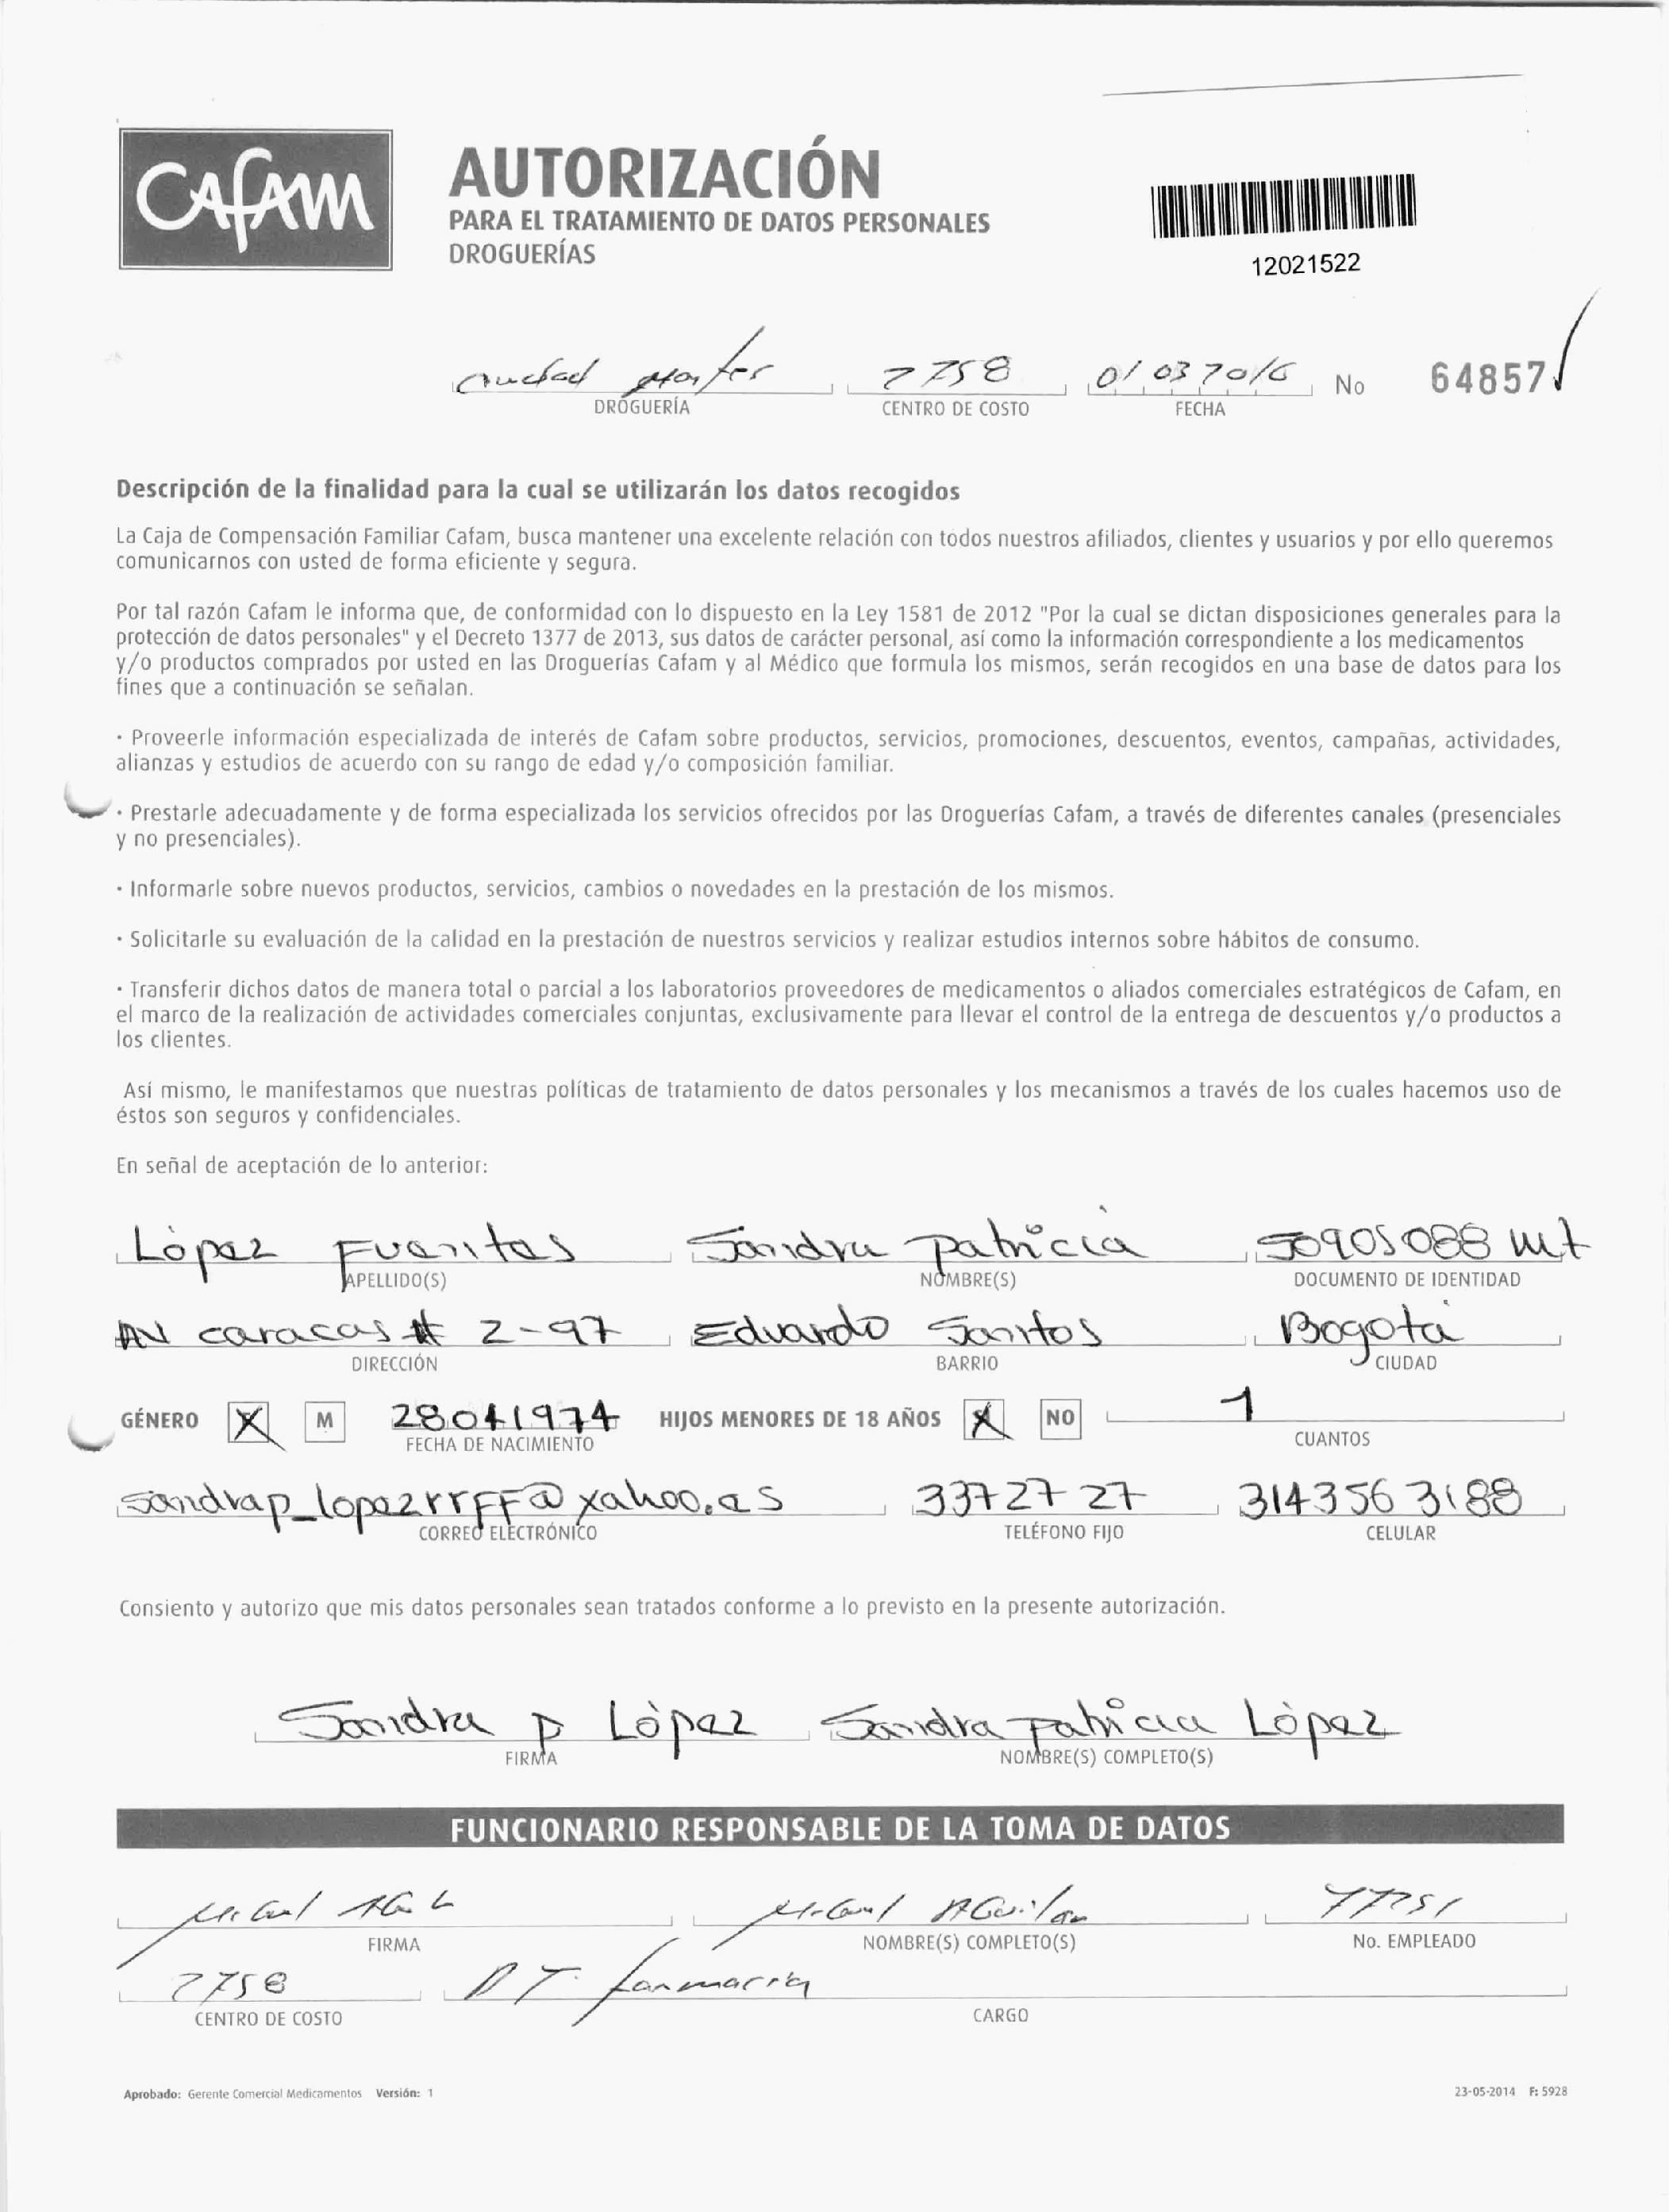 CAFAM
AUTORIZACIÓN
PARA EL TRATAMIENTO DE DATOS PERSONALES
DROGUERÍAS
12021522
ciudad 7758 01 03 2016 No 64857
DROGUERÍA CENTRO DE COSTO FECHA
Descripción de la finalidad para la cual se utilizarán los datos recogidos
La Caja de Compensación Familiar Cafam, busca mantener una excelente relación con todos nuestros afiliados, clientes y usuarios y por ello queremos
comunicarnos con usted de forma eficiente y segura.
Por tal razón Cafam le informa que, de conformidad con lo dispuesto en la Ley 1581 de 2012 "Por la cual se dictan disposiciones generales para la
protección de datos personales" y el Decreto 1377 de 2013, sus datos de carácter personal, así como la información correspondiente a los medicamentos
y/o productos comprados por usted en las Droguerías Cafam y al Médico que formula los mismos, serán recogidos en una base de datos para los
fines que a continuación se señalan.
· Proveerle información especializada de interés de Cafam sobre productos, servicios, promociones, descuentos, eventos, campañas, actividades,
alianzas y estudios de acuerdo con su rango de edad y/o composición familiar.
· Prestarle adecuadamente y de forma especializada los servicios ofrecidos por las Droguerías Cafam, a través de diferentes canales (presenciales
y no presenciales).
· Informarle sobre nuevos productos, servicios, cambios o novedades en la prestación de los mismos.
· Solicitarle su evaluación de la calidad en la prestación de nuestros servicios y realizar estudios internos sobre hábitos de consumo.
· Transferir dichos datos de manera total o parcial a los laboratorios proveedores de medicamentos o aliados comerciales estratégicos de Cafam, en
el marco de la realización de actividades comerciales conjuntas, exclusivamente para llevar el control de la entrega de descuentos y/o productos a
los clientes.
Así mismo, le manifestamos que nuestras políticas de tratamiento de datos personales y los mecanismos a través de los cuales hacemos uso de
éstos son seguros y confidenciales.
En señal de aceptación de lo anterior:
López Fuentes Sandra Patricia 50905088 Mt
APELLIDO(S) NOMBRE(S) DOCUMENTO DE IDENTIDAD
AV caracas # 2-97 Eduardo Santos Bogotá
DIRECCIÓN BARRIO CIUDAD
GÉNERO X M 28041974 HIJOS MENORES DE 18 AÑOS X NO 1
FECHA DE NACIMIENTO CUANTOS
sandrap_lopezrrff@yahoo.es 3372727 3143563188
CORREO ELECTRÓNICO TELÉFONO FIJO CELULAR
Consiento y autorizo que mis datos personales sean tratados conforme a lo previsto en la presente autorización.
Sandra P López Sandra Patricia López
FIRMA NOMBRE(S) COMPLETO(S)
FUNCIONARIO RESPONSABLE DE LA TOMA DE DATOS
Miguel Aguilar
FIRMA NOMBRE(S) COMPLETO(S) No. EMPLEADO
7758 farmacia
CENTRO DE COSTO CARGO
Aprobado: Gerente Comercial Medicamentos Versión: 1 23-05-2014 F: 5928